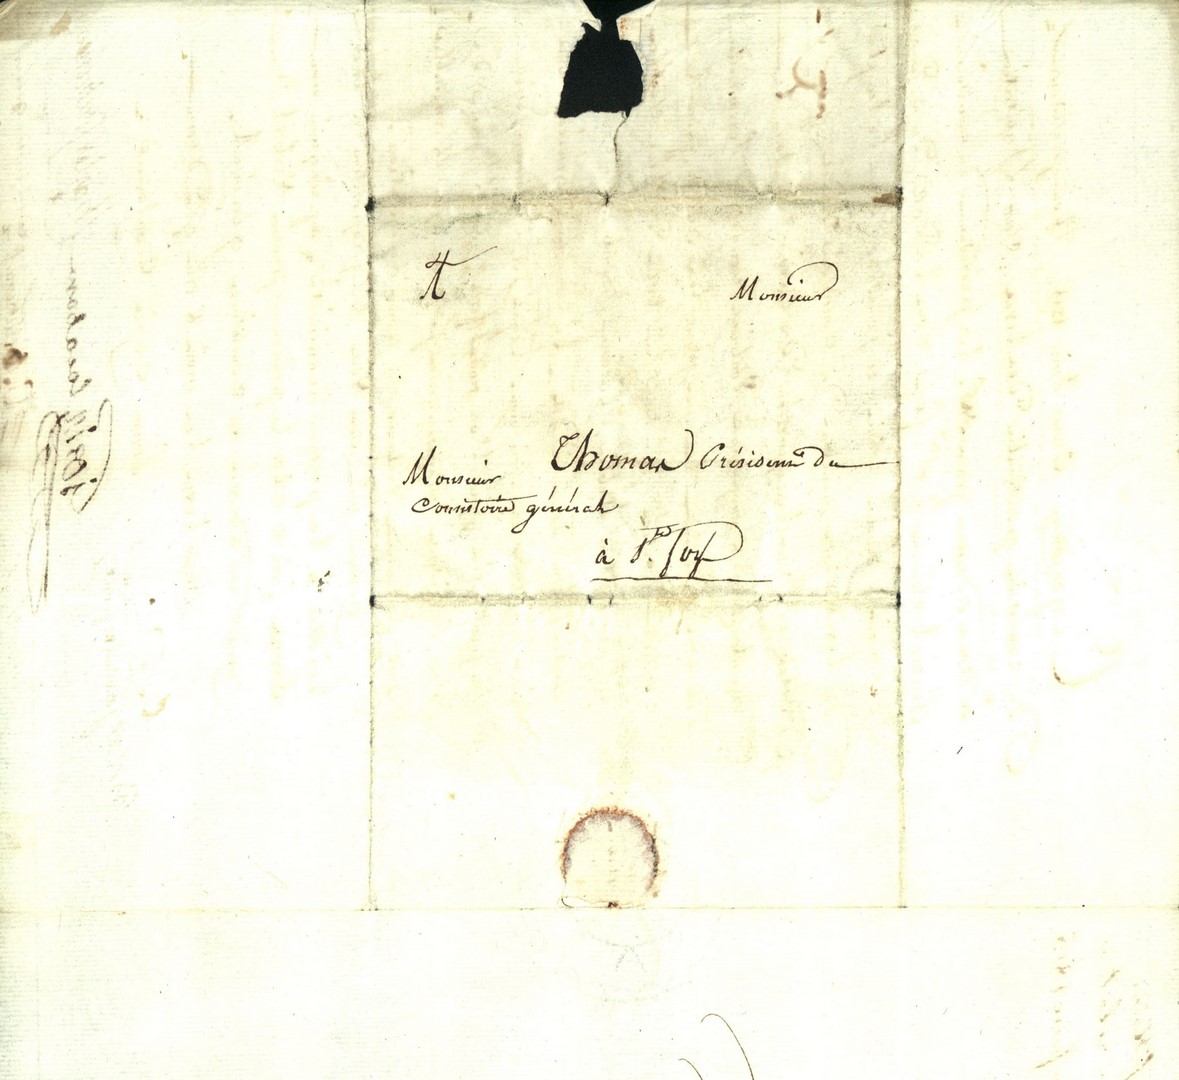 A Monsieur
Monsieur Thomas Président du
Consistoire général
à Ste foy